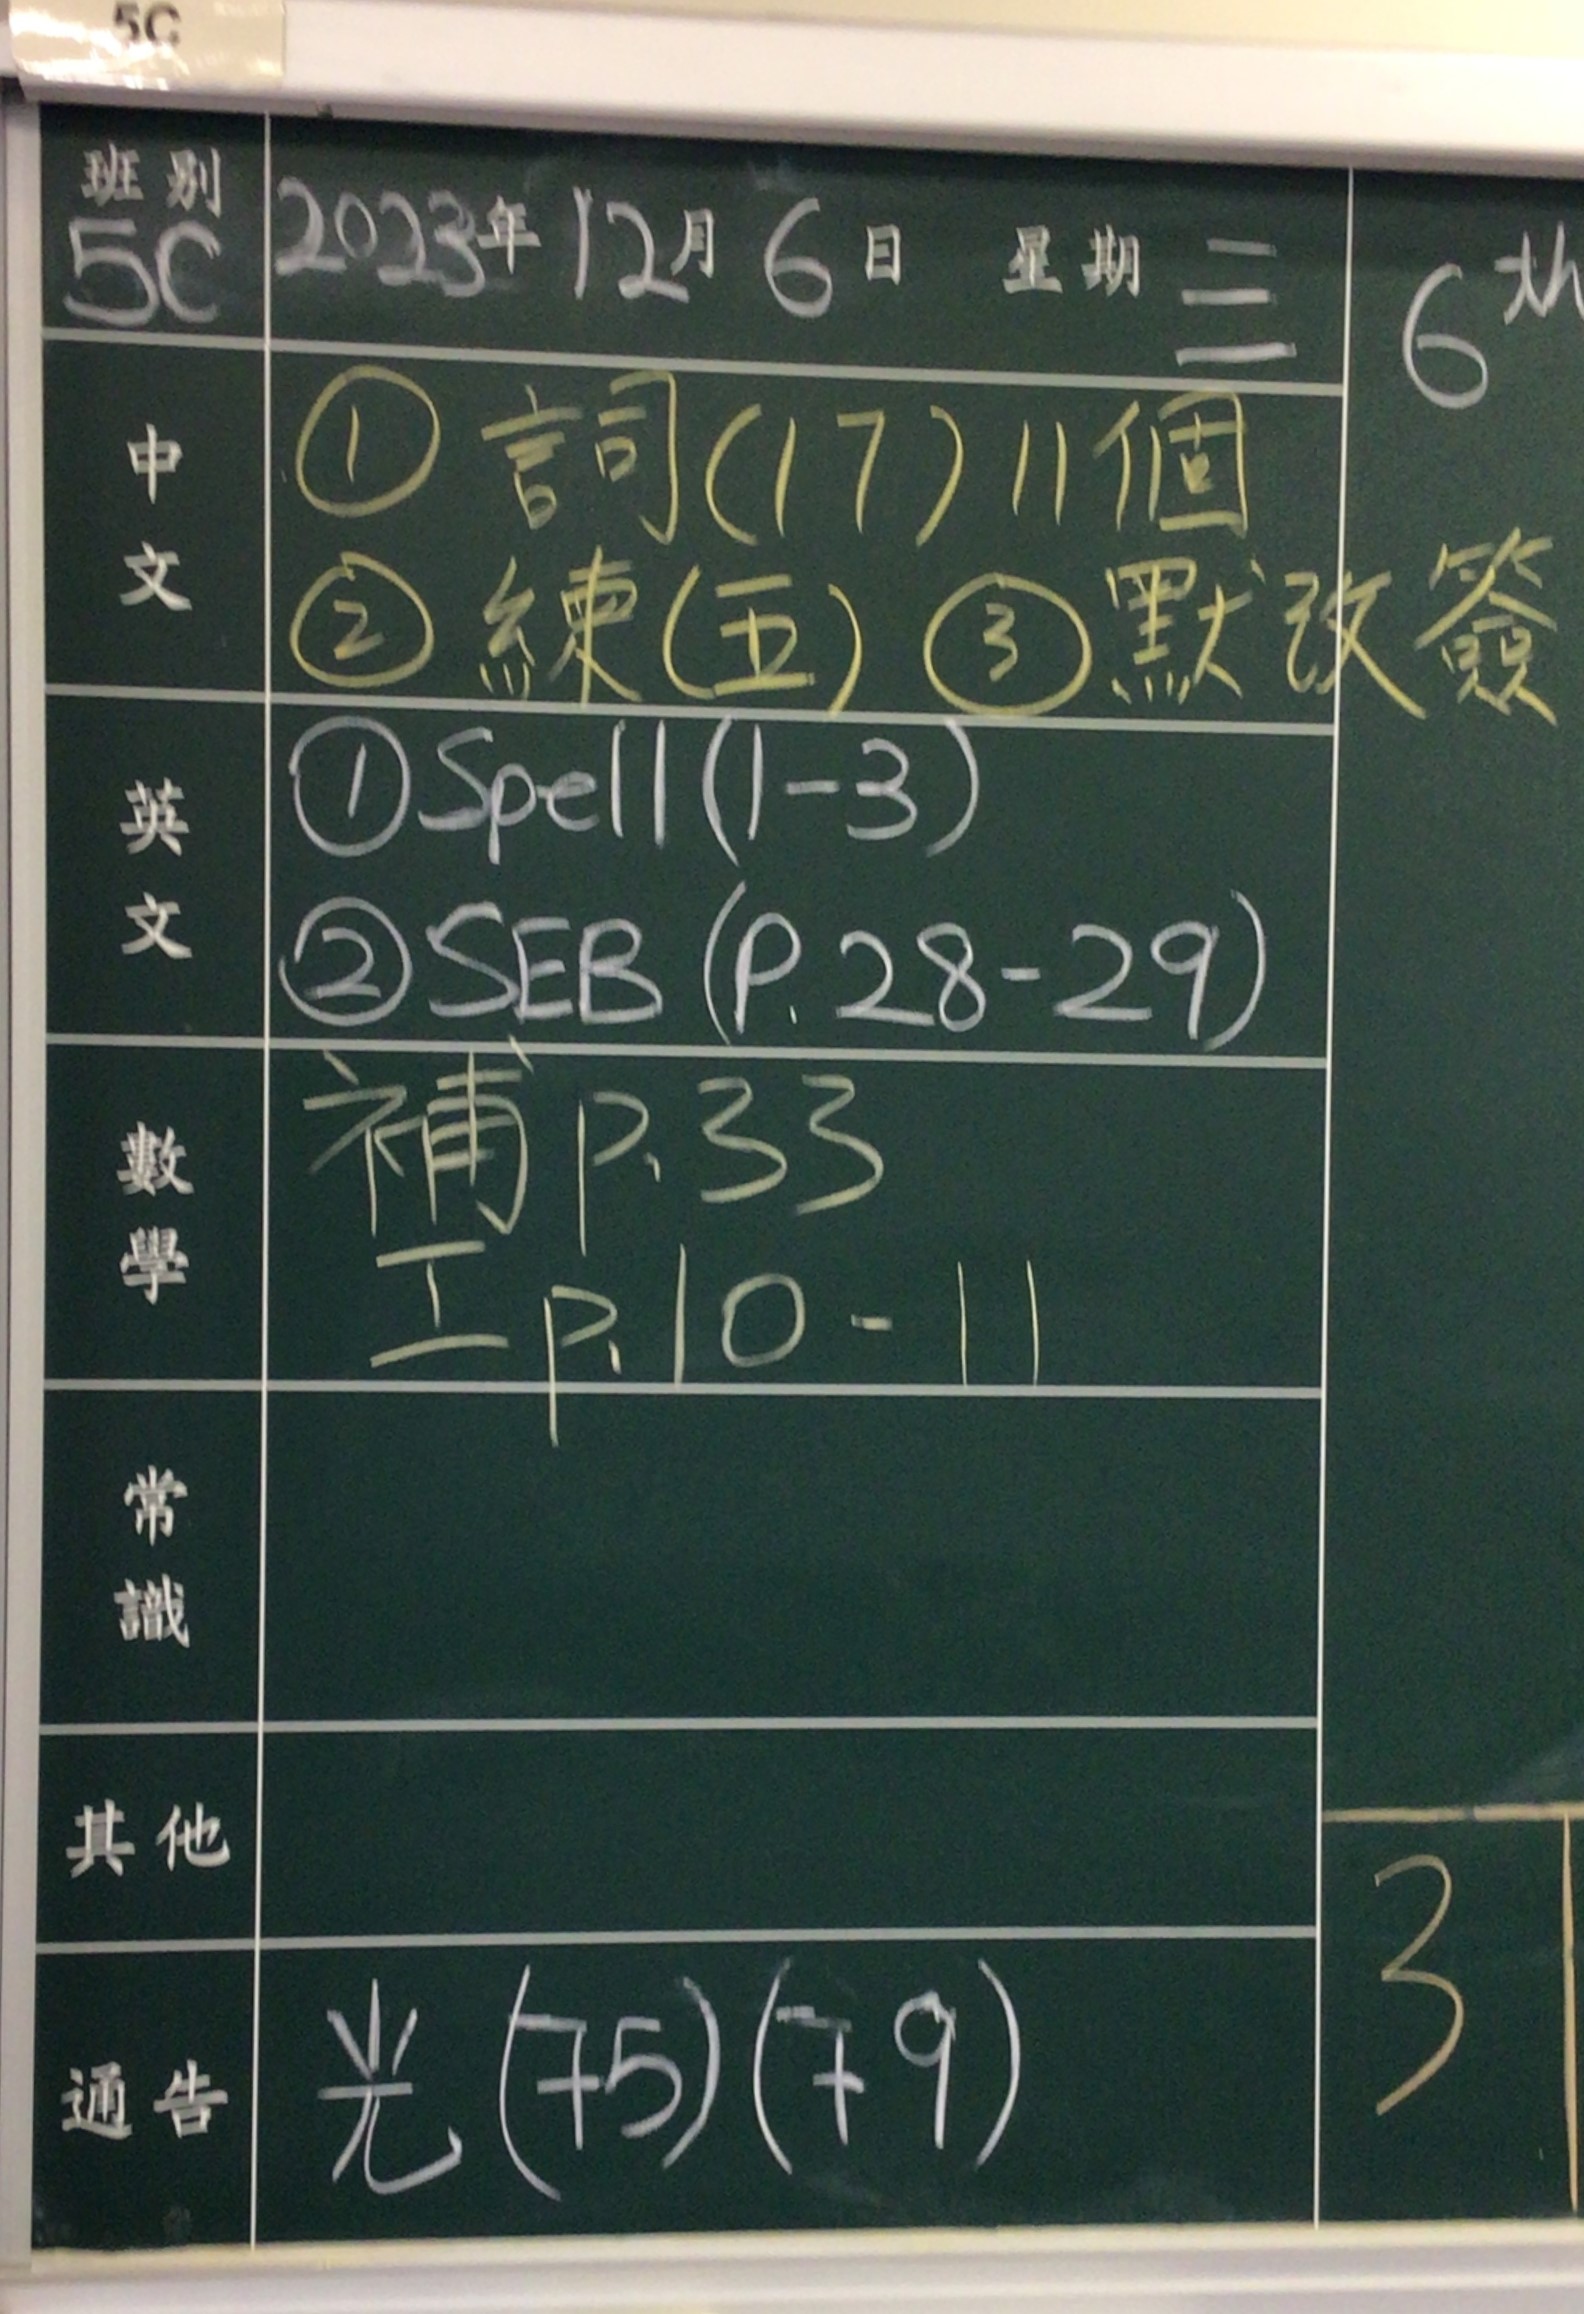 5C
班別
5C
2023年12月6日 星期三
6th
中文
① 詞(17)11個
② 練(五) ③ 默改簽
英文
① Spell (1-3)
② SEB (P.28-29)
數學
補 p.33
工 p.10-11
常識
其他
通告
光 (75)(79)
3